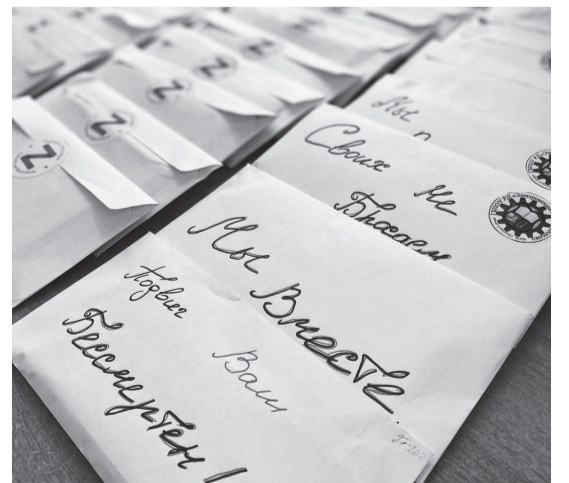 Z
Z
Z
Z
Z
Мы
Своих не
Бросаем
Мы
Вместе
Подвиг
Ваш
Бессмертен!